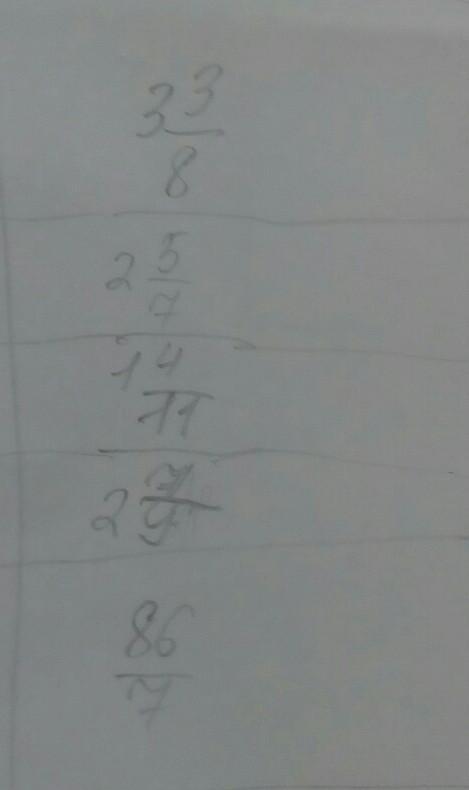 3 3/8
2 5/7
1 4/11
2 7/9
86/7